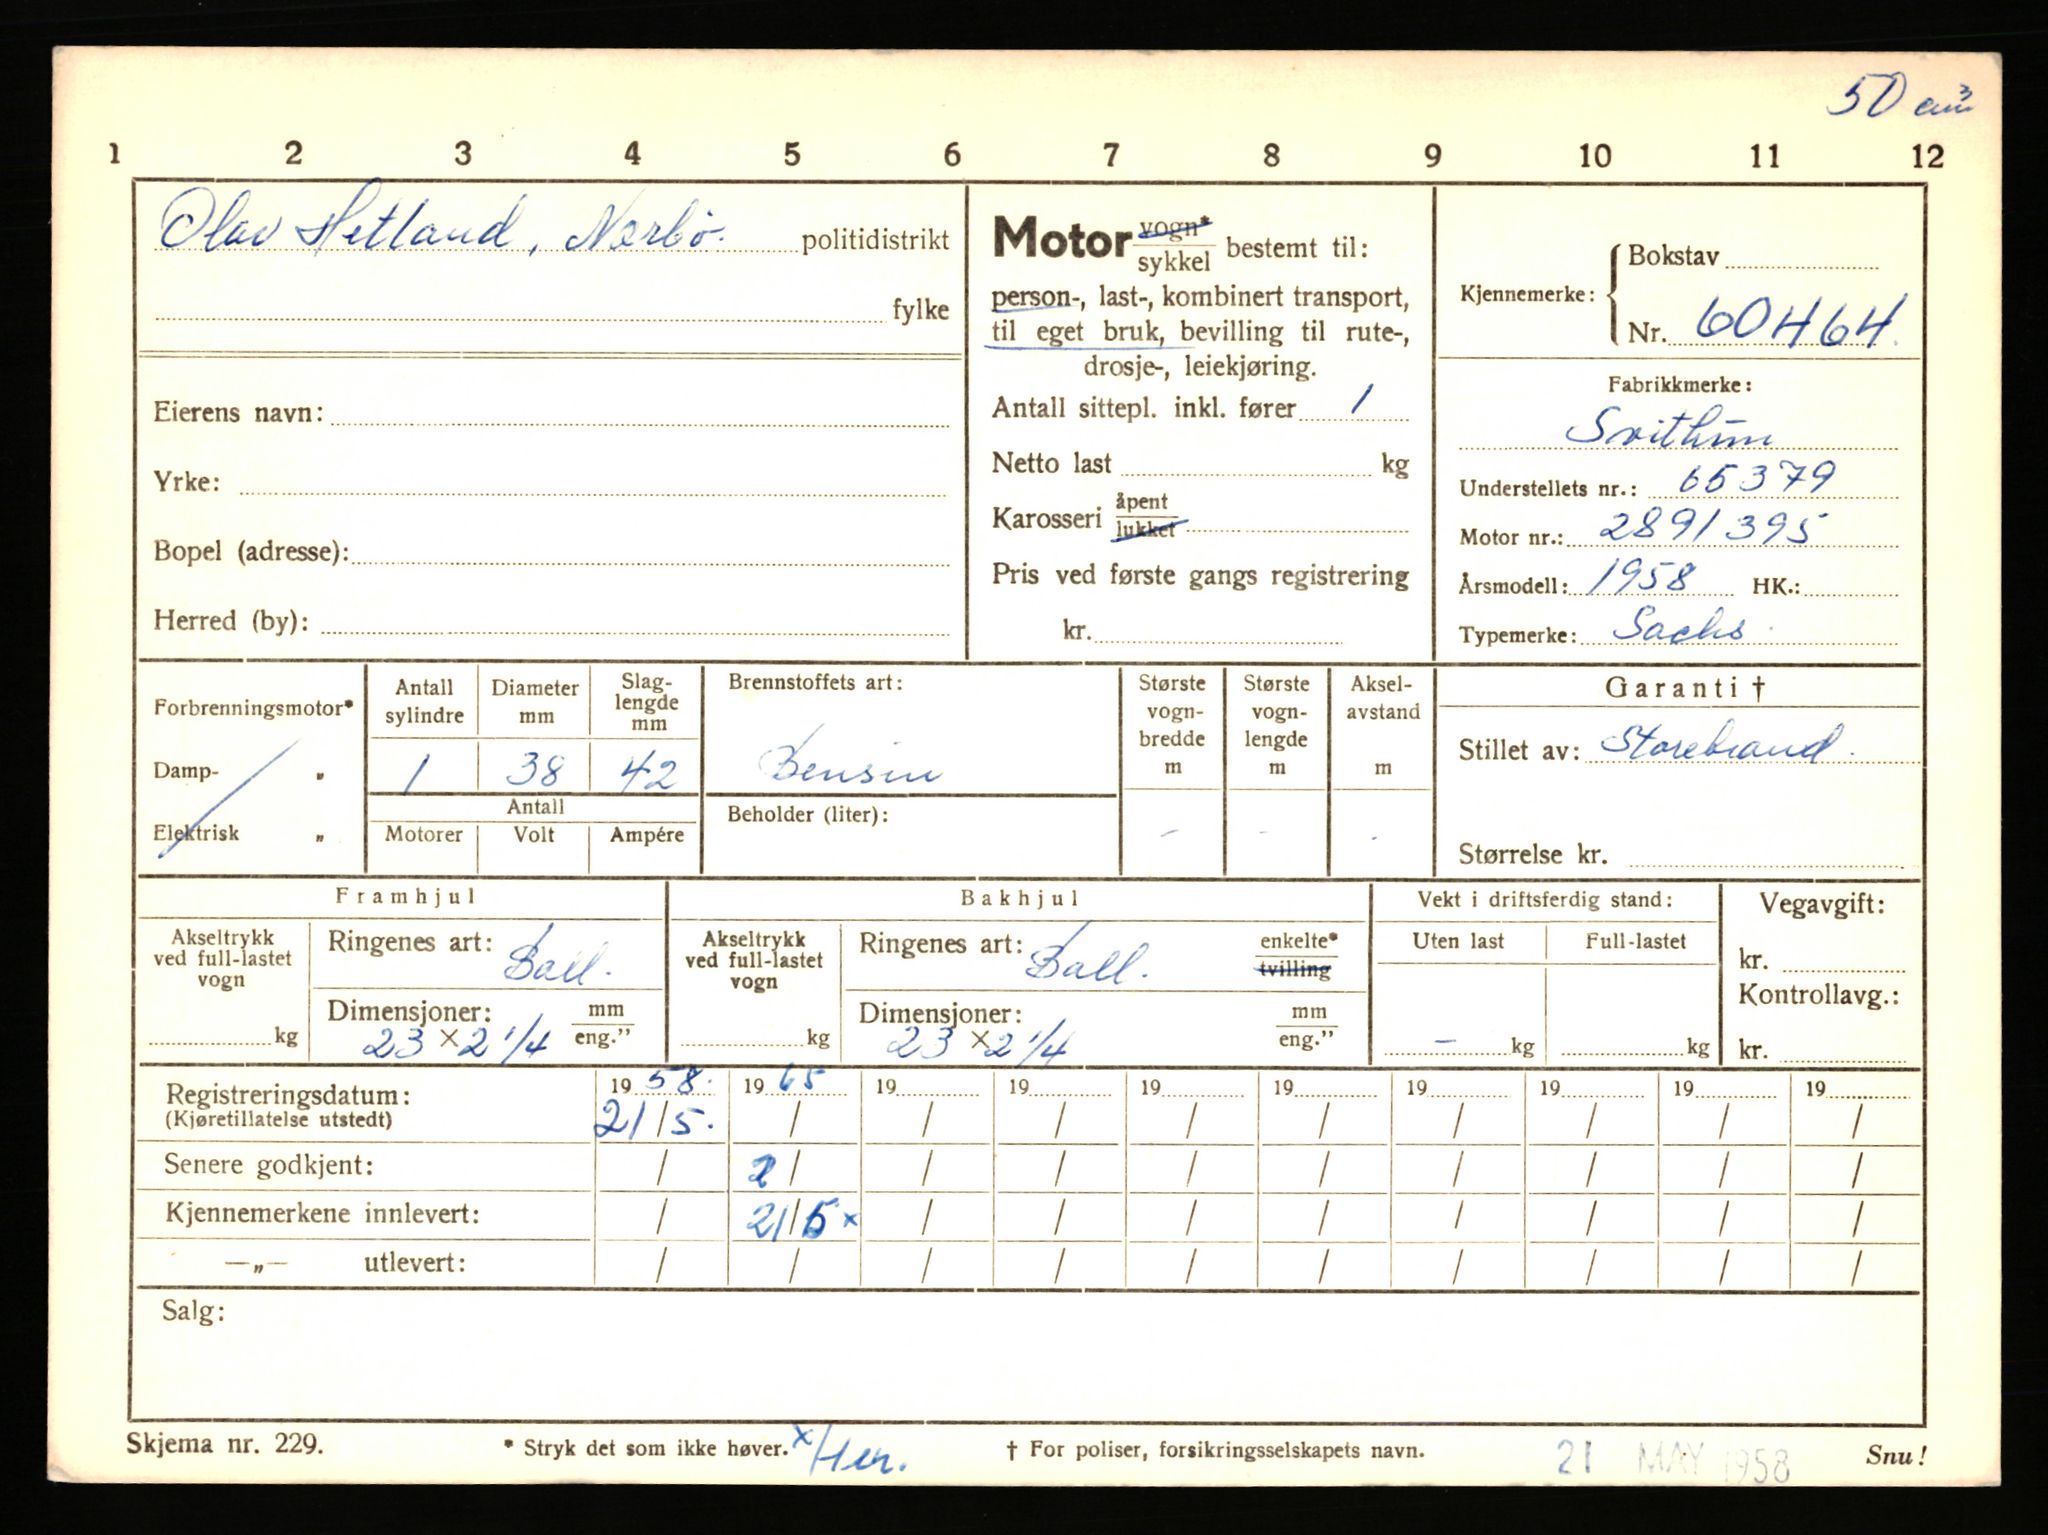 50 cm³
1 2 3 4 5 6 7 8 9 10 11 12
Olav Hetland, Nærbö. politidistrikt
fylke
Eierens navn:
Yrke:
Bopel (adresse):
Herred (by):
Motor vogn* / sykkel bestemt til:
person-, last-, kombinert transport,
til eget bruk, bevilling til rute-,
drosje-, leiekjøring.
Antall sittepl. inkl. fører 1
Netto last kg
Karosseri åpent / lukket
Pris ved første gangs registrering
kr.
Kjennemerke: Bokstav
Nr. 60464.
Fabrikkmerke:
Svithun
Understellets nr.: 65379
Motor nr.: 2891395
Årsmodell: 1958 HK.:
Typemerke: Sachs.
Forbrenningsmotor*
Damp- „
Elektrisk „
Antall sylindre
1
Diameter mm
38
Slag-
lengde
mm
42
Antall
Motorer Volt Ampére
Brennstoffets art:
Bensin
Beholder (liter):
Største
vogn-
bredde
m
-
Største
vogn-
lengde
m
-
Aksel-
avstand
m
-
Garanti †
Stillet av: Storebrand.
Størrelse kr.
Framhjul
Akseltrykk
ved full-lastet
vogn
kg
Ringenes art: Ball.
Dimensjoner: mm
23 × 2 1/4 eng.”
Bakhjul
Akseltrykk
ved full-lastet
vogn
kg
Ringenes art: Ball. enkelte*
tvilling
Dimensjoner: mm
23 × 2 1/4 eng.”
Vekt i driftsferdig stand:
Uten last Full-lastet
- kg kg
Vegavgift:
kr.
Kontrollavg.:
kr.
Registreringsdatum: 19 58. 19 65 19 19 19 19 19 19 19 19
(Kjøretillatelse utstedt) 21/5. / / / / / / / / /
Senere godkjent: / 2/ / / / / / / / /
Kjennemerkene innlevert: / 21/5 x / / / / / / / /
—„— utlevert: / / / / / / / / / /
Salg:
Skjema nr. 229. * Stryk det som ikke høver. × / † For poliser, forsikringsselskapets navn. 21 MAY 1958 Snu!